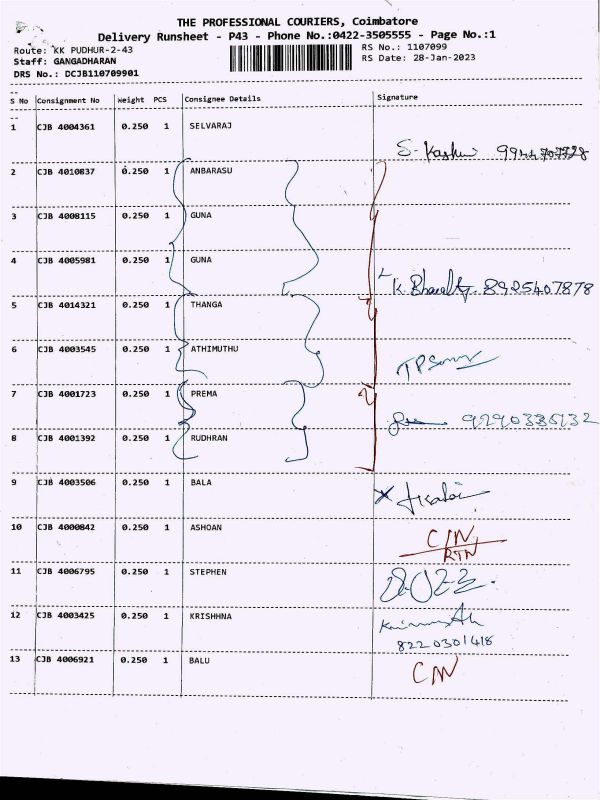 THE PROFESSIONAL COURIERS, Coimbatore
Delivery Runsheet - P43 - Phone No.:0422-3505555 - Page No.:1
Route: KK PUDHUR-2-43
RS No.: 1107099
Staff: GANGADHARAN
RS Date: 28-Jan-2023
DRS No.: DCJB110709901
S No Consignment No Weight PCS Consignee Details Signature
1 CJB 4004361 0.250 1 SELVARAJ
9944707728
2 CJB 4010837 0.250 1 ANBARASU
3 CJB 4008115 0.250 1 GUNA
4 CJB 4005981 0.250 1 GUNA
8925407878
5 CJB 4014321 0.250 1 THANGA
6 CJB 4003545 0.250 1 ATHIMUTHU
7 CJB 4001723 0.250 1 PREMA
8 CJB 4001392 0.250 1 RUDHRAN
9 CJB 4003506 0.250 1 BALA
10 CJB 4000842 0.250 1 ASHOAN
C/N
RTN
11 CJB 4006795 0.250 1 STEPHEN
12 CJB 4003425 0.250 1 KRISHHNA
8220301418
13 CJB 4006921 0.250 1 BALU
C/N